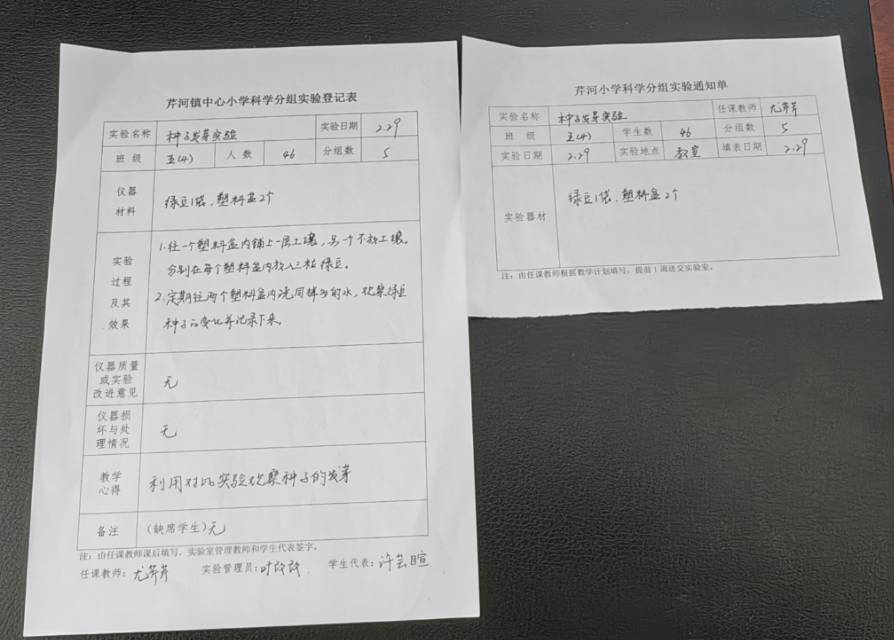 芹河镇中心小学科学分组实验登记表
实验名称 种子发芽实验 实验日期 2.29
班 级 五(4) 人 数 46 分组数 5
仪器
材料
绿豆1袋、塑料盒2个
实验
过程
及其
效果
1.往一个塑料盒内铺上一层土壤,另一个不放土壤。
分别在每个塑料盒内放入三粒绿豆。
2.定期往两个塑料盒内浇同样多的水,观察绿豆
种子的变化并记录下来。
仪器质量
或实验
改进意见
无
仪器损
坏与处
理情况
无
教学
心得
利用对比实验观察种子的发芽
备注 (缺席学生)无
注:由任课教师课后填写,实验室管理教师和学生代表签字。
任课教师: 尤芹芹 实验管理员: 学生代表:
芹河小学科学分组实验通知单
实验名称 种子发芽实验 任课教师 尤芹芹
班 级 五(4) 学生数 46 分组数 5
实验日期 2.29 实验地点 教室 填表日期 2.29
实验器材
绿豆1袋、塑料盒2个
注:由任课教师根据教学计划填写,提前1周送交实验室。